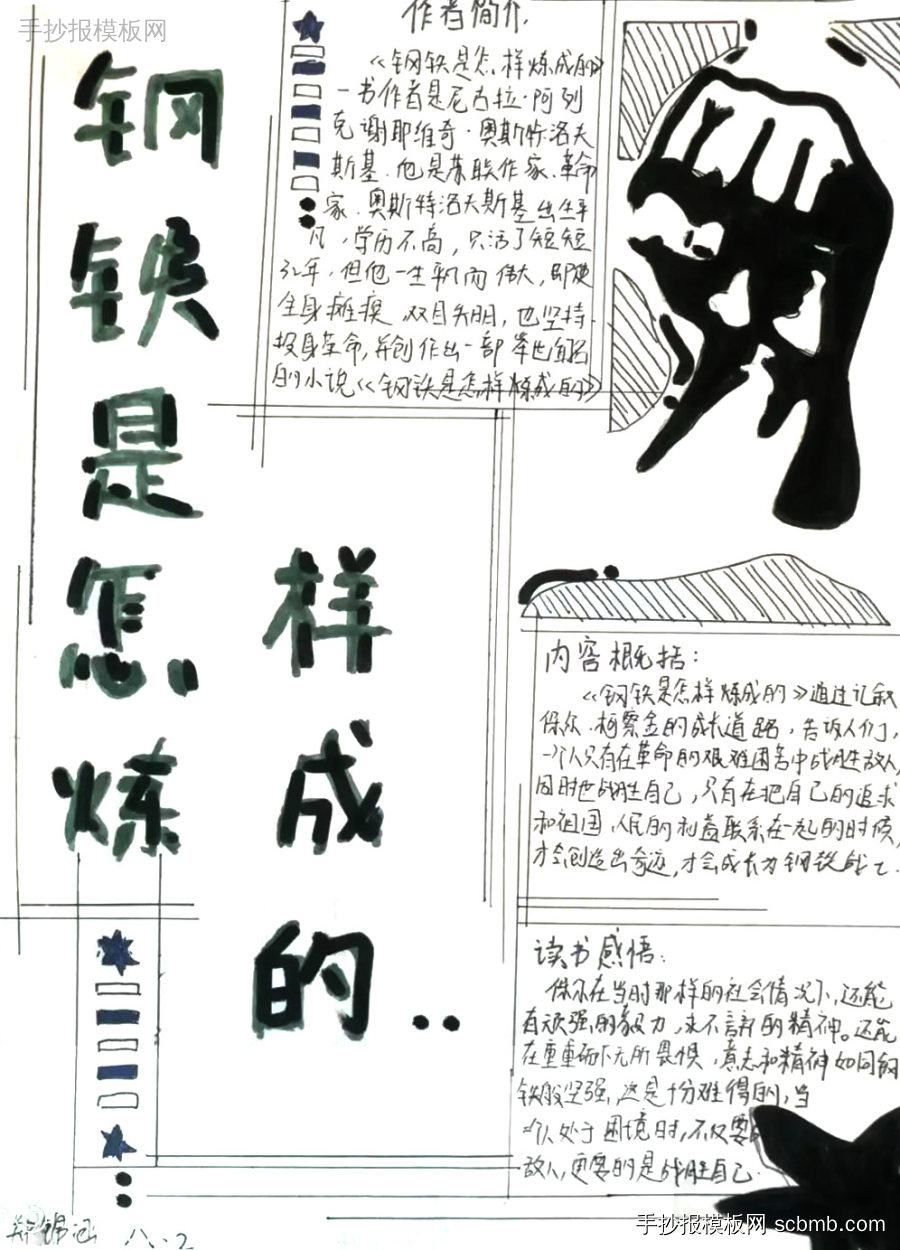 手抄报模板网
钢铁是怎样炼成的..
作者简介
《钢铁是怎样炼成的》
一书作者是尼古拉·阿列
克谢耶维奇·奥斯特洛夫
斯基.他是苏联作家、革命
家.奥斯特洛夫斯基出生平
凡，学历不高，只活了短短
32年，但他一生平凡而伟大，即使
全身瘫痪 双目失明，也坚持
投身革命，并创作出一部举世闻名
的小说《钢铁是怎样炼成的》
内容概括：
《钢铁是怎样炼成的》通过记叙
保尔.柯察金的成长道路，告诉人们，
一个人只有在革命的艰难困苦中战胜敌人
同时也战胜自己，只有在把自己的追求
和祖国、人民的利益联系在一起的时候，
才会创造出奇迹，才会成长为钢铁战士.
读书感悟：
保尔在当时那样的社会情况下，还能
有顽强的毅力，永不言弃的精神。还能
在重重砸下无所畏惧，意志和精神如同钢
铁般坚强，这是十分难得的，当
个人处于困境时，不仅要
敌人，更要的是战胜自己.
八.2
手抄报模板网 scbmb.com